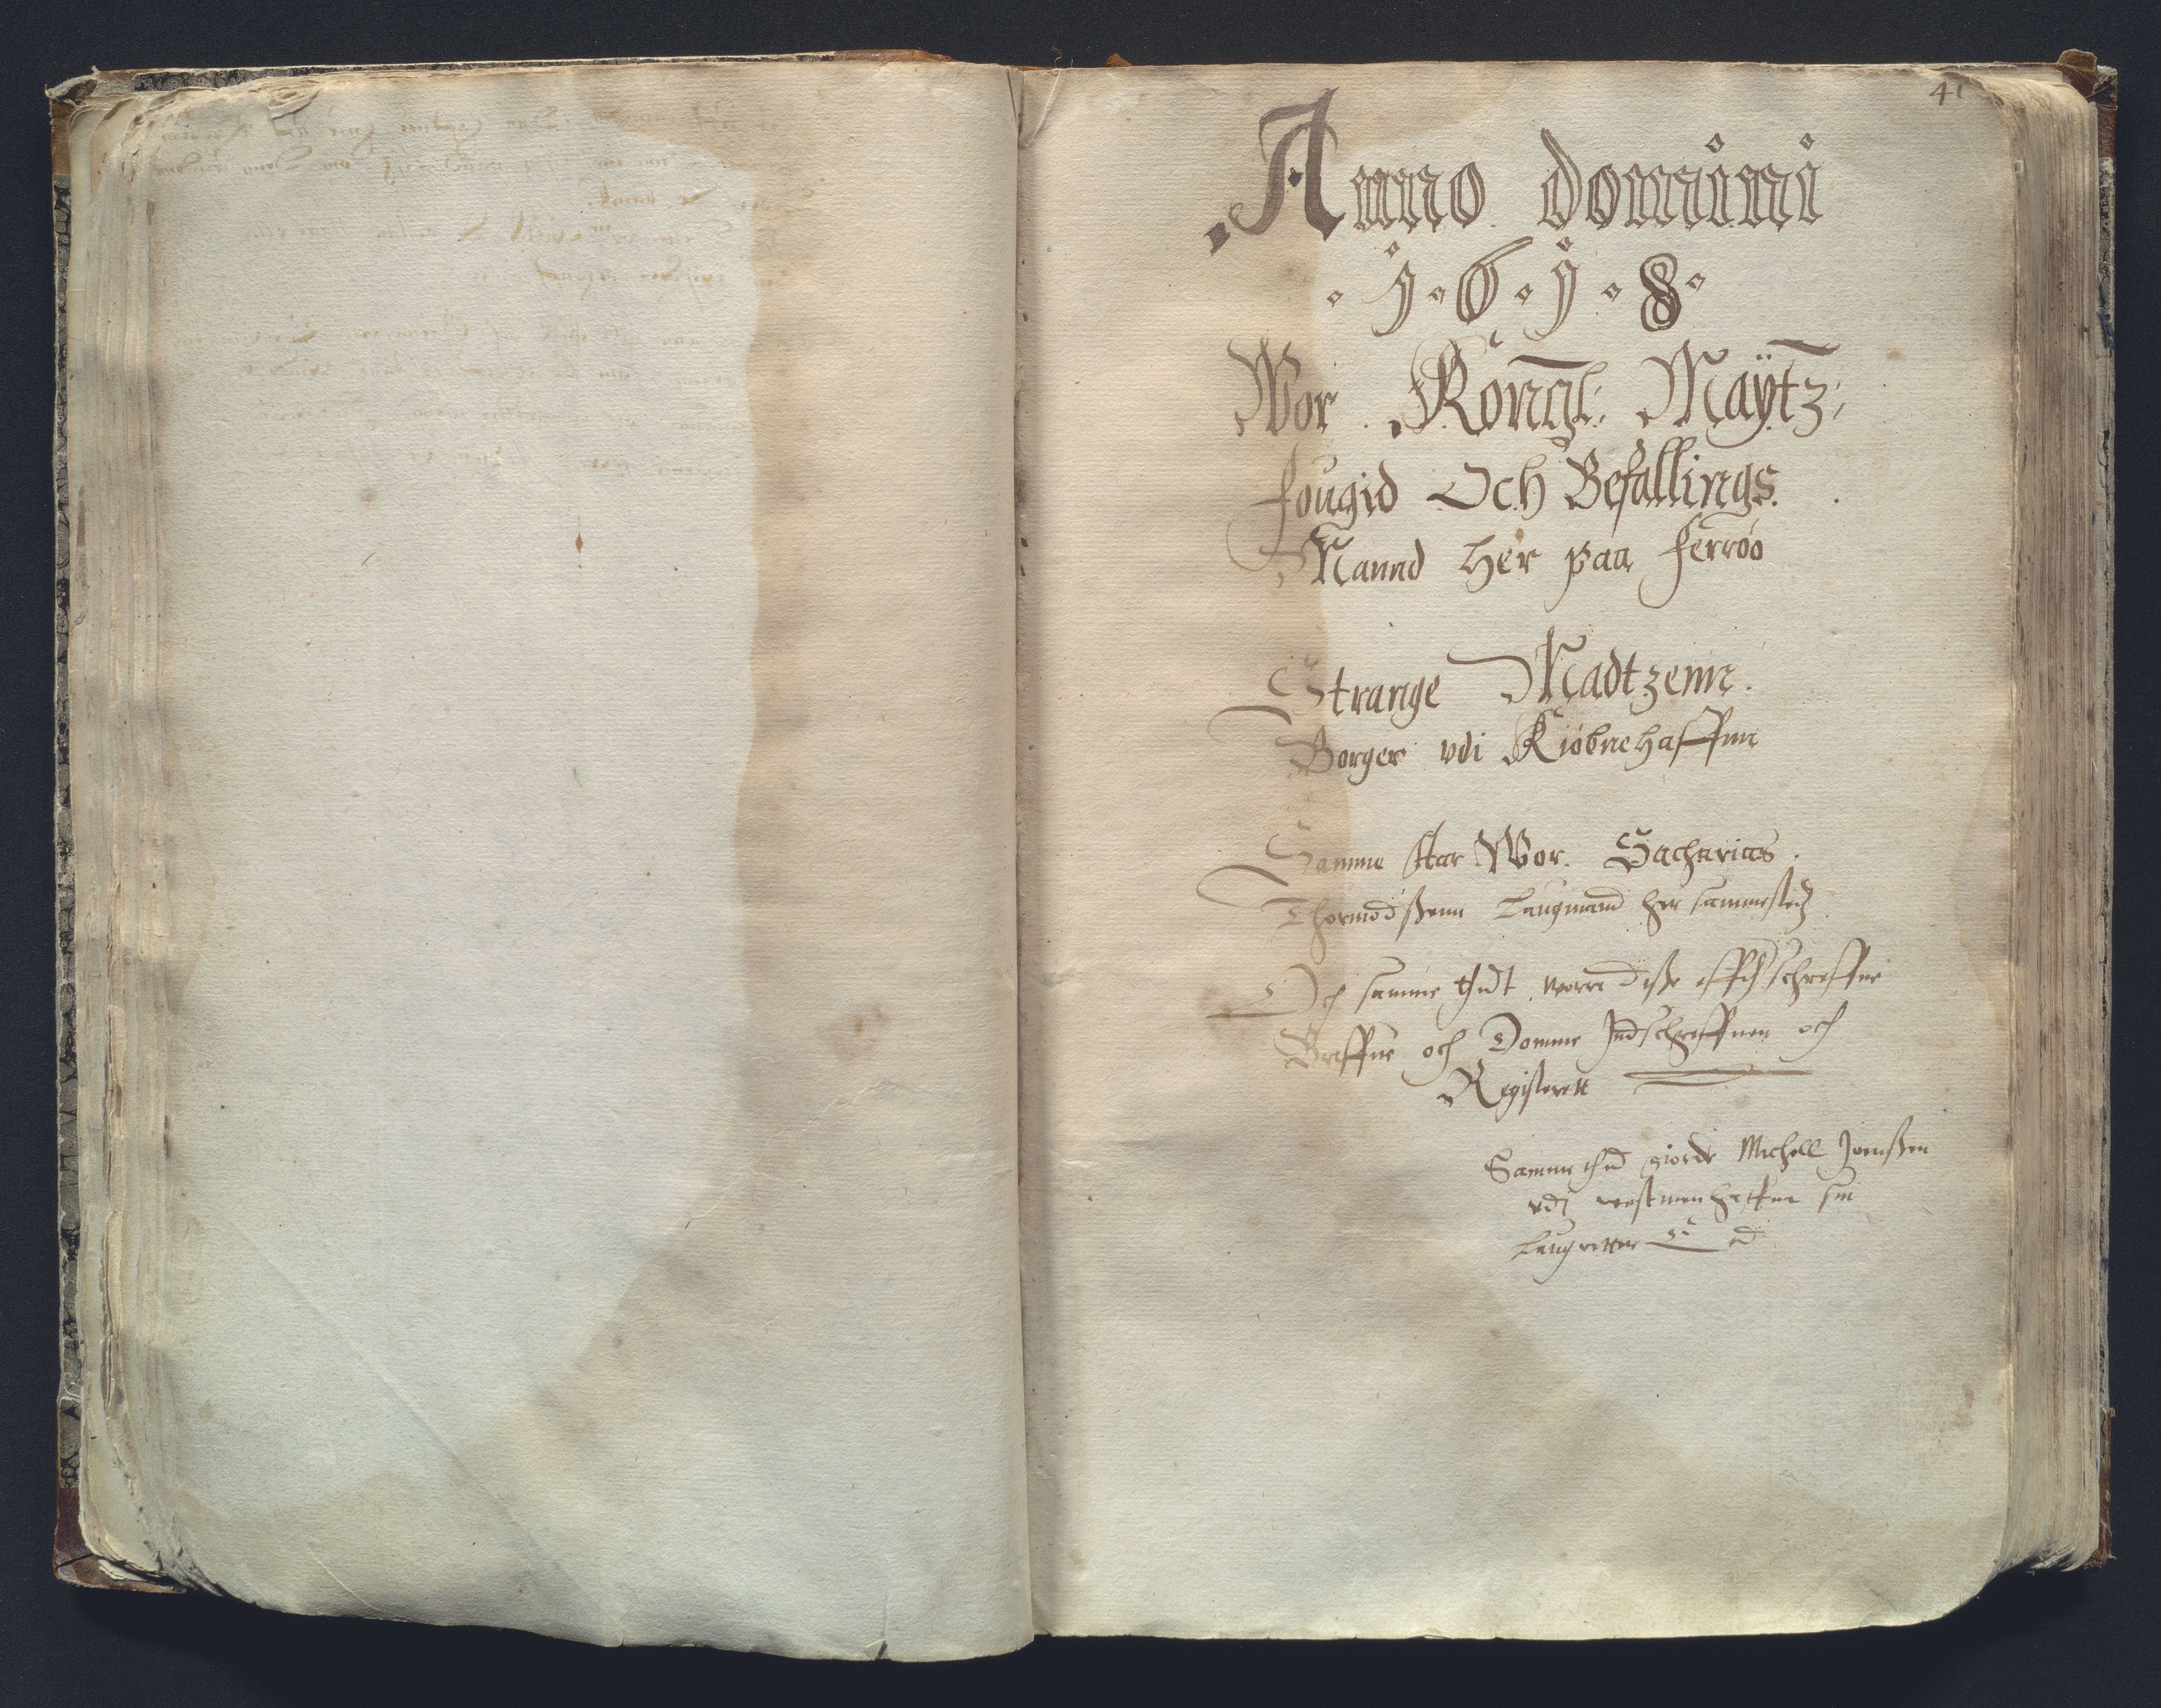 41
Anno domini
· j · 6 · j · 8 ·
Wor Kongl: Maÿtz:
fougid Och Befallings
Mannd her paa ferröo
Strange Madtzenn.
Borger vdi Kiøbnehaffnn
Samme Aar Wor. Zacharias
Thormodßenn Laugmand her sammestedz
Och samme thidt worre diße effth schreffne
Breffue och Domme Indschreffuen och
Registerett
Samme thid giorde Michell Joenßen
vdj westmanhaffun sin
Laugretter Eed